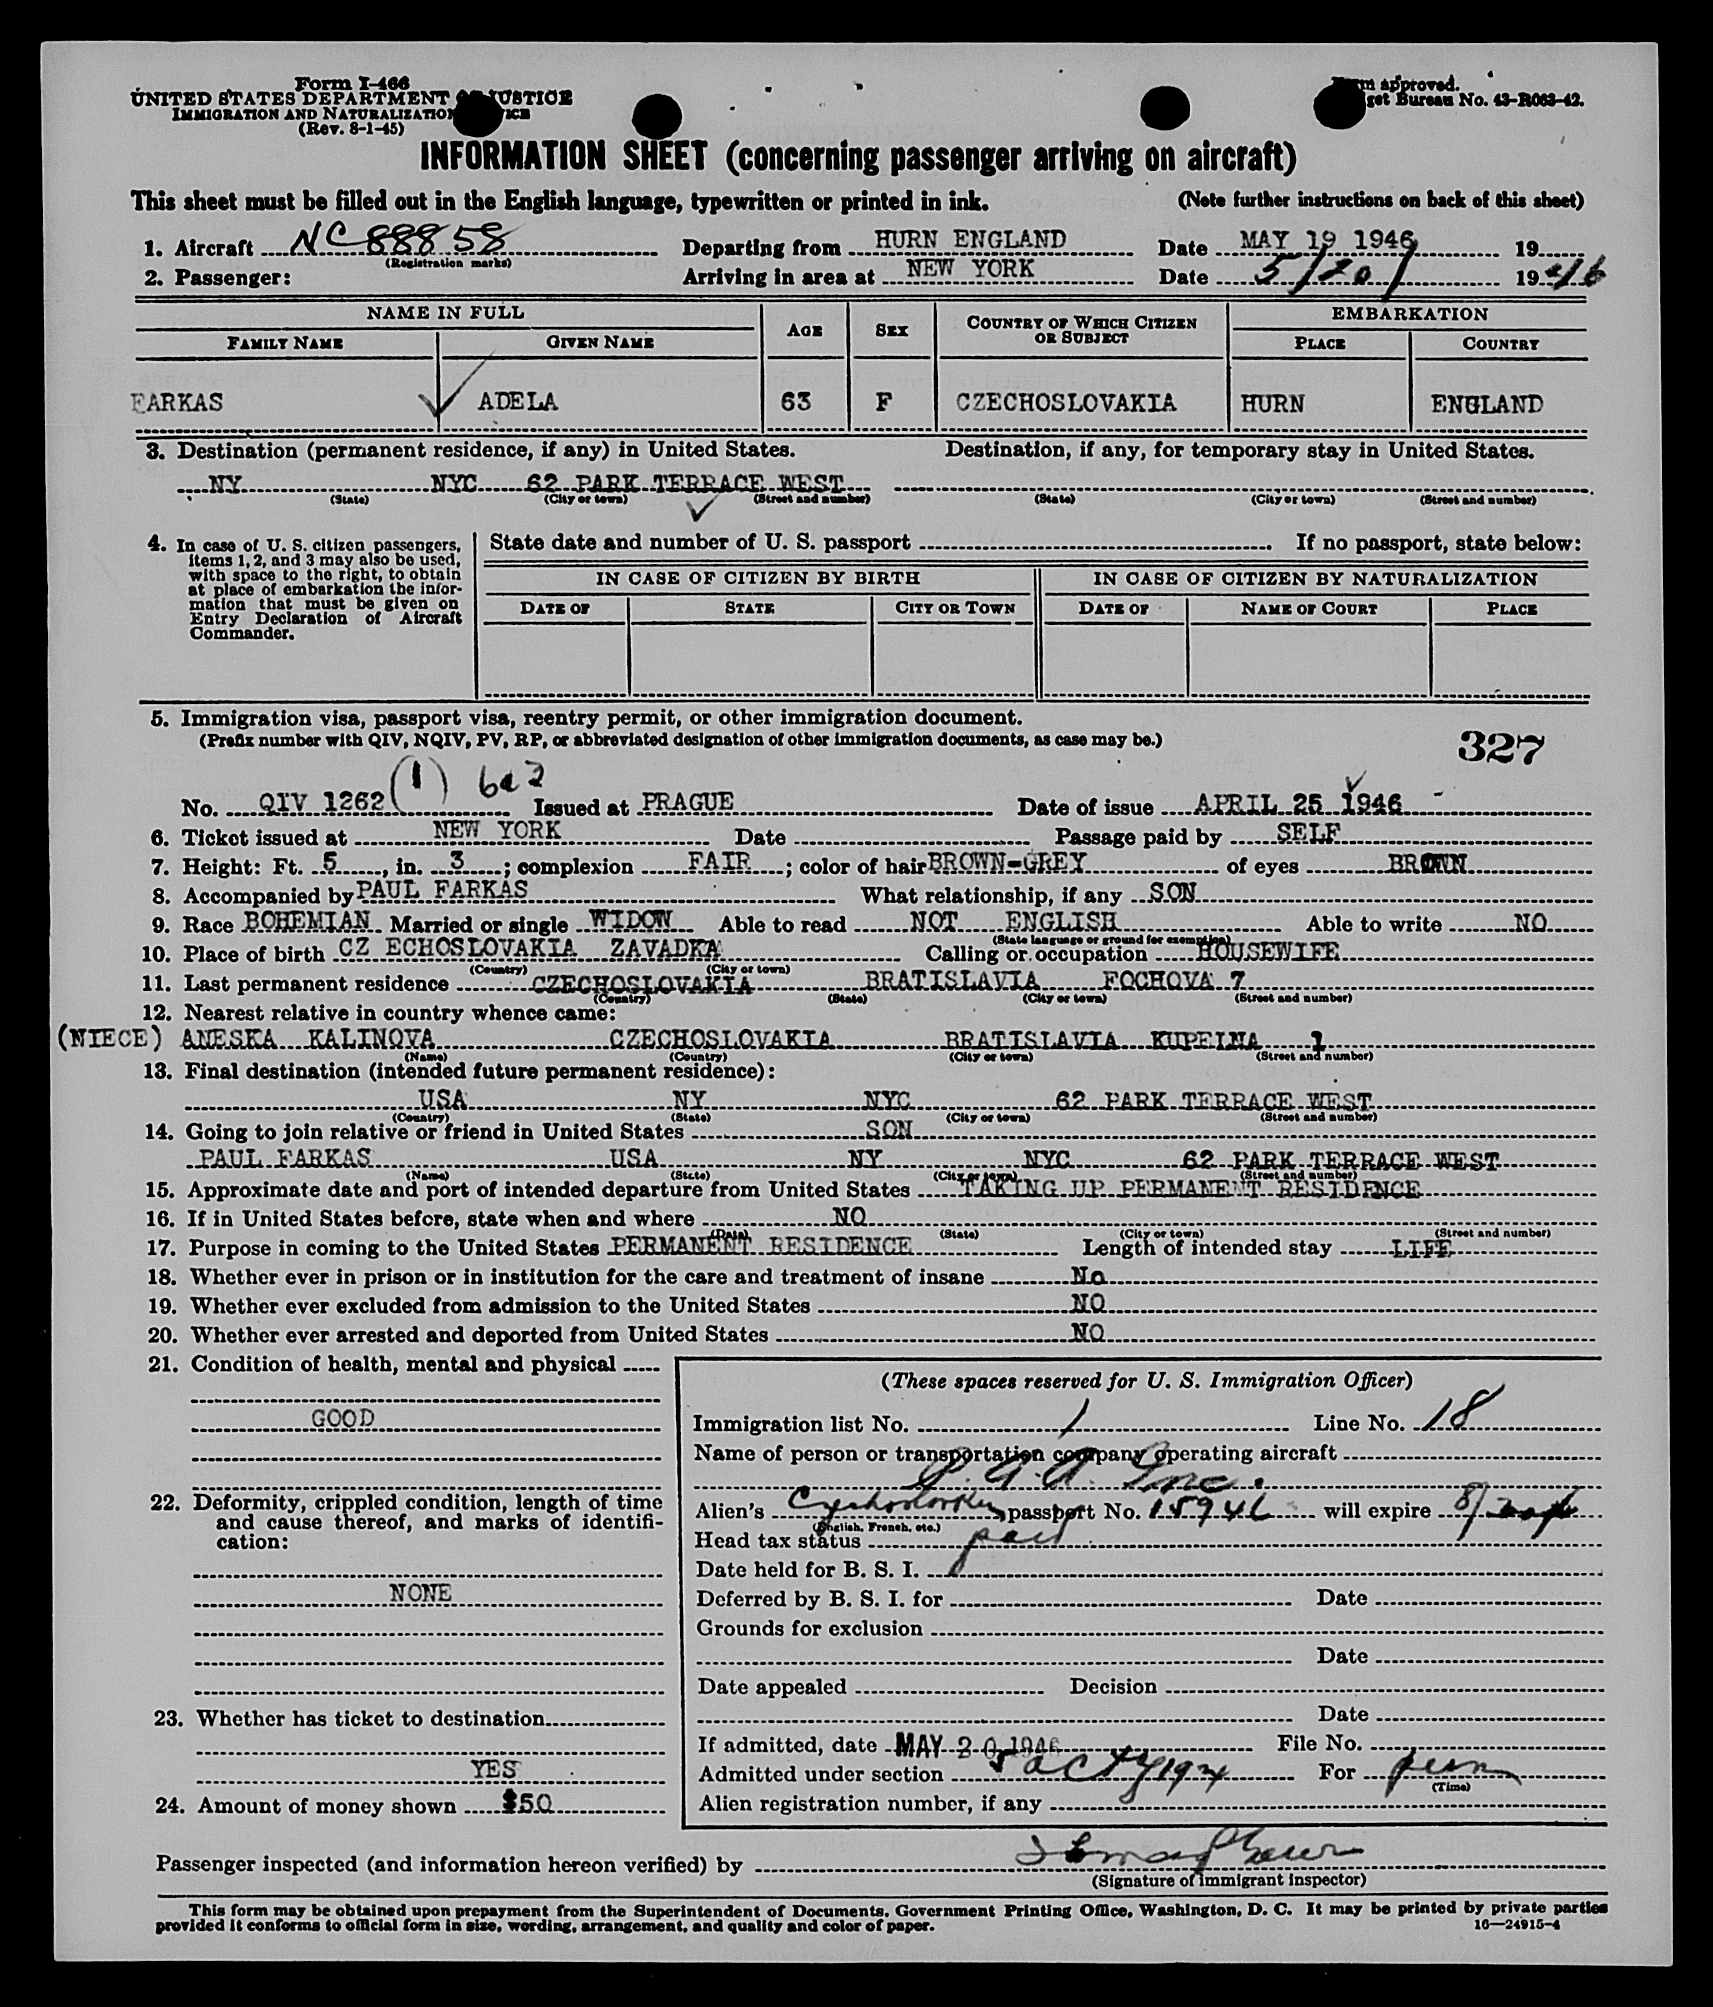 Form I-466
UNITED STATES DEPARTMENT OF JUSTICE
IMMIGRATION AND NATURALIZATION
(Rev. 8-1-45)
approved.
Bureau No. 43-R063-42.
INFORMATION SHEET (concerning passenger arriving on aircraft)
This sheet must be filled out in the English language, typewritten or printed in ink. (Note further instructions on back of this sheet)
1. Aircraft NC 88858 Departing from HURN ENGLAND Date MAY 19 1946 19
(Registration marks)
2. Passenger: Arriving in area at NEW YORK Date 5/20/ 1946
NAME IN FULL AGE SEX COUNTRY OF WHICH CITIZEN OR SUBJECT EMBARKATION
FAMILY NAME GIVEN NAME PLACE COUNTRY
FARKAS ADELA 63 F CZECHOSLOVAKIA HURN ENGLAND
3. Destination (permanent residence, if any) in United States. Destination, if any, for temporary stay in United States.
NY NYC 62 PARK TERRACE WEST
(State) (City or town) (Street and number) (State) (City or town) (Street and number)
4. In case of U. S. citizen passengers,
items 1, 2, and 3 may also be used,
with space to the right, to obtain
at place of embarkation the infor-
mation that must be given on
Entry Declaration of Aircraft
Commander.
State date and number of U. S. passport . If no passport, state below:
IN CASE OF CITIZEN BY BIRTH IN CASE OF CITIZEN BY NATURALIZATION
DATE OF STATE CITY OR TOWN DATE OF NAME OF COURT PLACE
5. Immigration visa, passport visa, reentry permit, or other immigration document.
(Prefix number with QIV, NQIV, PV, RP, or abbreviated designation of other immigration documents, as case may be.)
327
(1)
No. QIV 1262 Issued at PRAGUE Date of issue APRIL 25 1946
6. Ticket issued at NEW YORK Date Passage paid by SELF
7. Height: Ft. 5, in. 3; complexion FAIR; color of hair BROWN-GREY of eyes BROWN
8. Accompanied by PAUL FARKAS What relationship, if any SON
9. Race BOHEMIAN Married or single WIDOW Able to read NOT ENGLISH Able to write NO
(State language or ground for exemption)
10. Place of birth CZ ECHOSLOVAKIA ZAVADKA Calling or occupation HOUSEWIFE
(Country) (City or town)
11. Last permanent residence CZECHOSLOVAKIA BRATISLAVIA FOCHOVA 7
(Country) (State) (City or town) (Street and number)
12. Nearest relative in country whence came:
(NIECE) ANESKA KALINOVA CZECHOSLOVAKIA BRATISLAVIA KUPEINA 1
(Name) (Country) (City or town) (Street and number)
13. Final destination (intended future permanent residence):
USA NY NYC 62 PARK TERRACE WEST
(Country) (State) (City or town) (Street and number)
14. Going to join relative or friend in United States SON
PAUL FARKAS USA NY NYC 62 PARK TERRACE WEST
(Name) (State) (City or town) (Street and number)
15. Approximate date and port of intended departure from United States TAKING UP PERMANENT RESIDENCE
16. If in United States before, state when and where NO
(Date) (State) (City or town) (Street and number)
17. Purpose in coming to the United States PERMANENT RESIDENCE Length of intended stay LIFE
18. Whether ever in prison or in institution for the care and treatment of insane No
19. Whether ever excluded from admission to the United States NO
20. Whether ever arrested and deported from United States NO
21. Condition of health, mental and physical
GOOD
22. Deformity, crippled condition, length of time
and cause thereof, and marks of identifi-
cation:
NONE
23. Whether has ticket to destination
YES
24. Amount of money shown $50
(These spaces reserved for U. S. Immigration Officer)
Immigration list No. 1 Line No. 18
Name of person or transportation company operating aircraft
P. A. A. Inc.
Alien's passport No. 15946 will expire
(English, French, etc.)
Head tax status paid
Date held for B. S. I.
Deferred by B. S. I. for Date
Grounds for exclusion
Date
Date appealed Decision
Date
If admitted, date MAY 20 1946 File No.
Admitted under section 5 act of 1924 For perm
(Time)
Alien registration number, if any
Passenger inspected (and information hereon verified) by
(Signature of immigrant inspector)
This form may be obtained upon prepayment from the Superintendent of Documents, Government Printing Office, Washington, D. C. It may be printed by private parties
provided it conforms to official form in size, wording, arrangement, and quality and color of paper. 16—24915-4